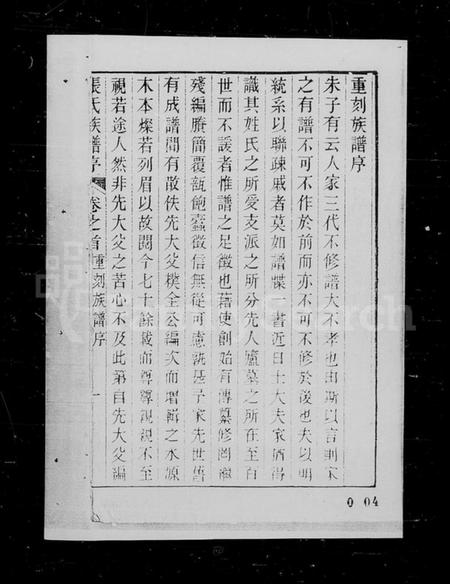 重刻族譜序
朱子有云人家三代不修譜大不孝也由斯以言則家
之有譜不可不作於前而亦不可不修於後也夫以明
統系以聯疎戚者莫如譜牒一書近日士大夫家猶得
識其姓氏之所受支派之所分先人廬墓之所在至百
世而不諼者惟譜之足徵也藉使創始有傳纂修罔繼
殘編賸簡覆瓿飽蠹徵信無從可慮孰甚予家先世舊
有成譜間有散佚先大父樸全公編次而增輯之水源
木本燦若列眉以故閱今七十餘載而尊尊親親不至
視若途人然非先大父之苦心不及此第自先大父編
張氏族譜序 卷之首重刻族譜序 一
0 04